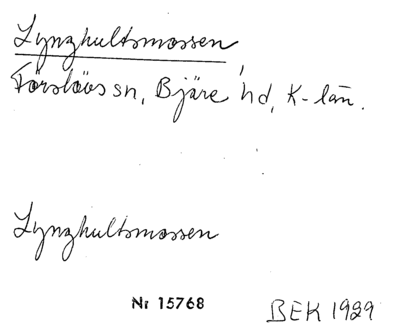 Lynghultsmossen,
Förslövs sn, Bjäre hd, K-län.
Lynghultsmossen
Nr 15768
BEK 1929